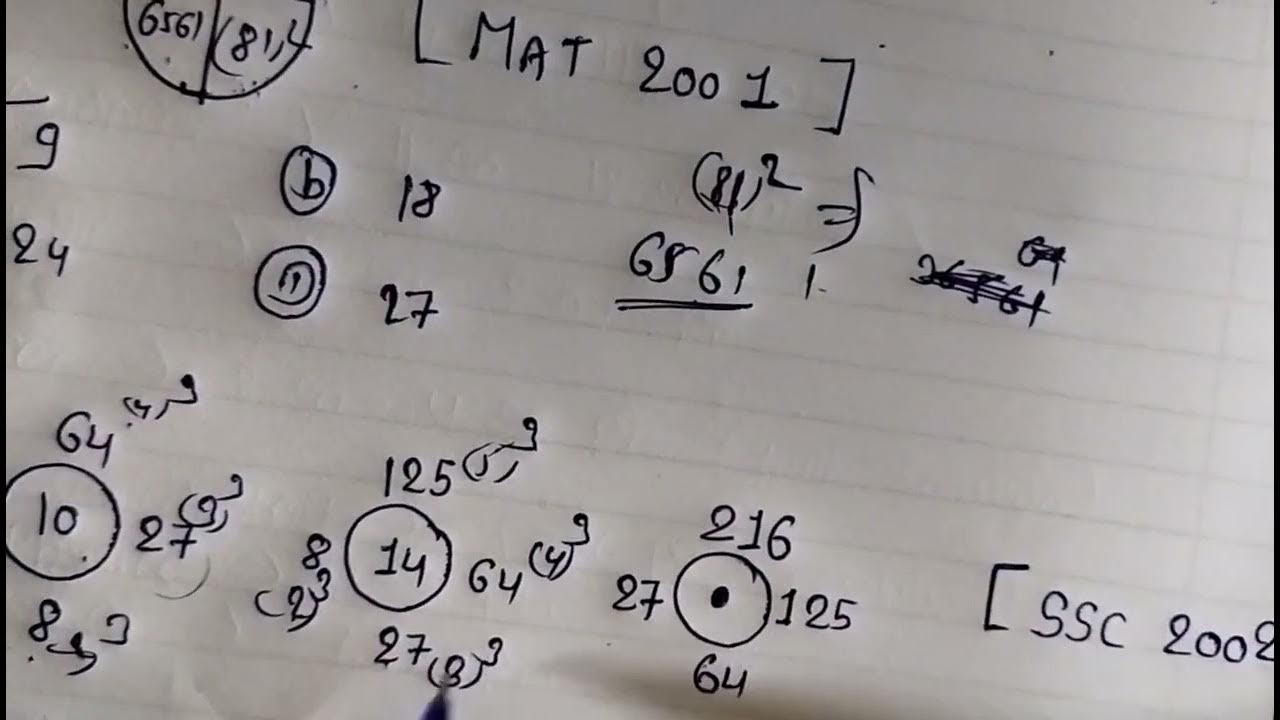 6561 (81)²
[ MAT 2001 ]
9
(b) 18 (81)² ⇒
24
27 6561
64 (4)³
10 27 (3)³
8
125 (5)³
8 14 64 (4)³
(2)³
27 (3)³
216
27 • 125
64
[ SSC 2002